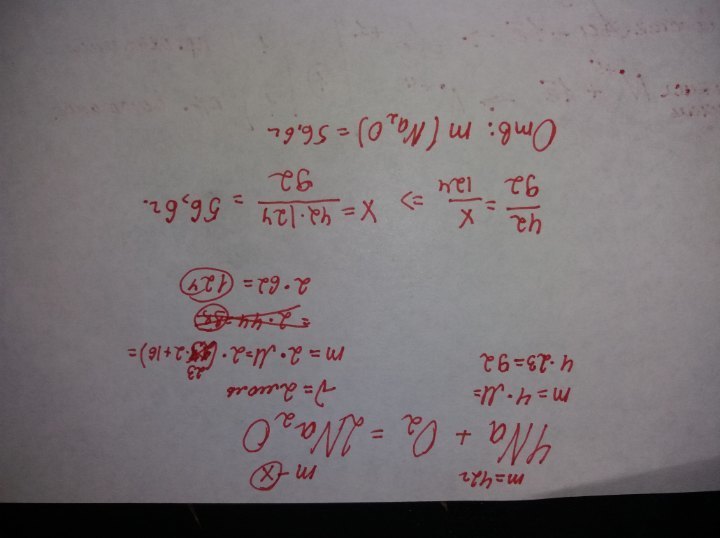 m=42г m-x
4Na + O2 = 2Na2O
m=4·M= ν=2моль
4·23=92 m=2·M=2·(23·2+16)=
=2·44
2·62=124
42/92 = x/124 => x = 42·124/92 = 56,6г.
Отв: m(Na2O)=56,6г